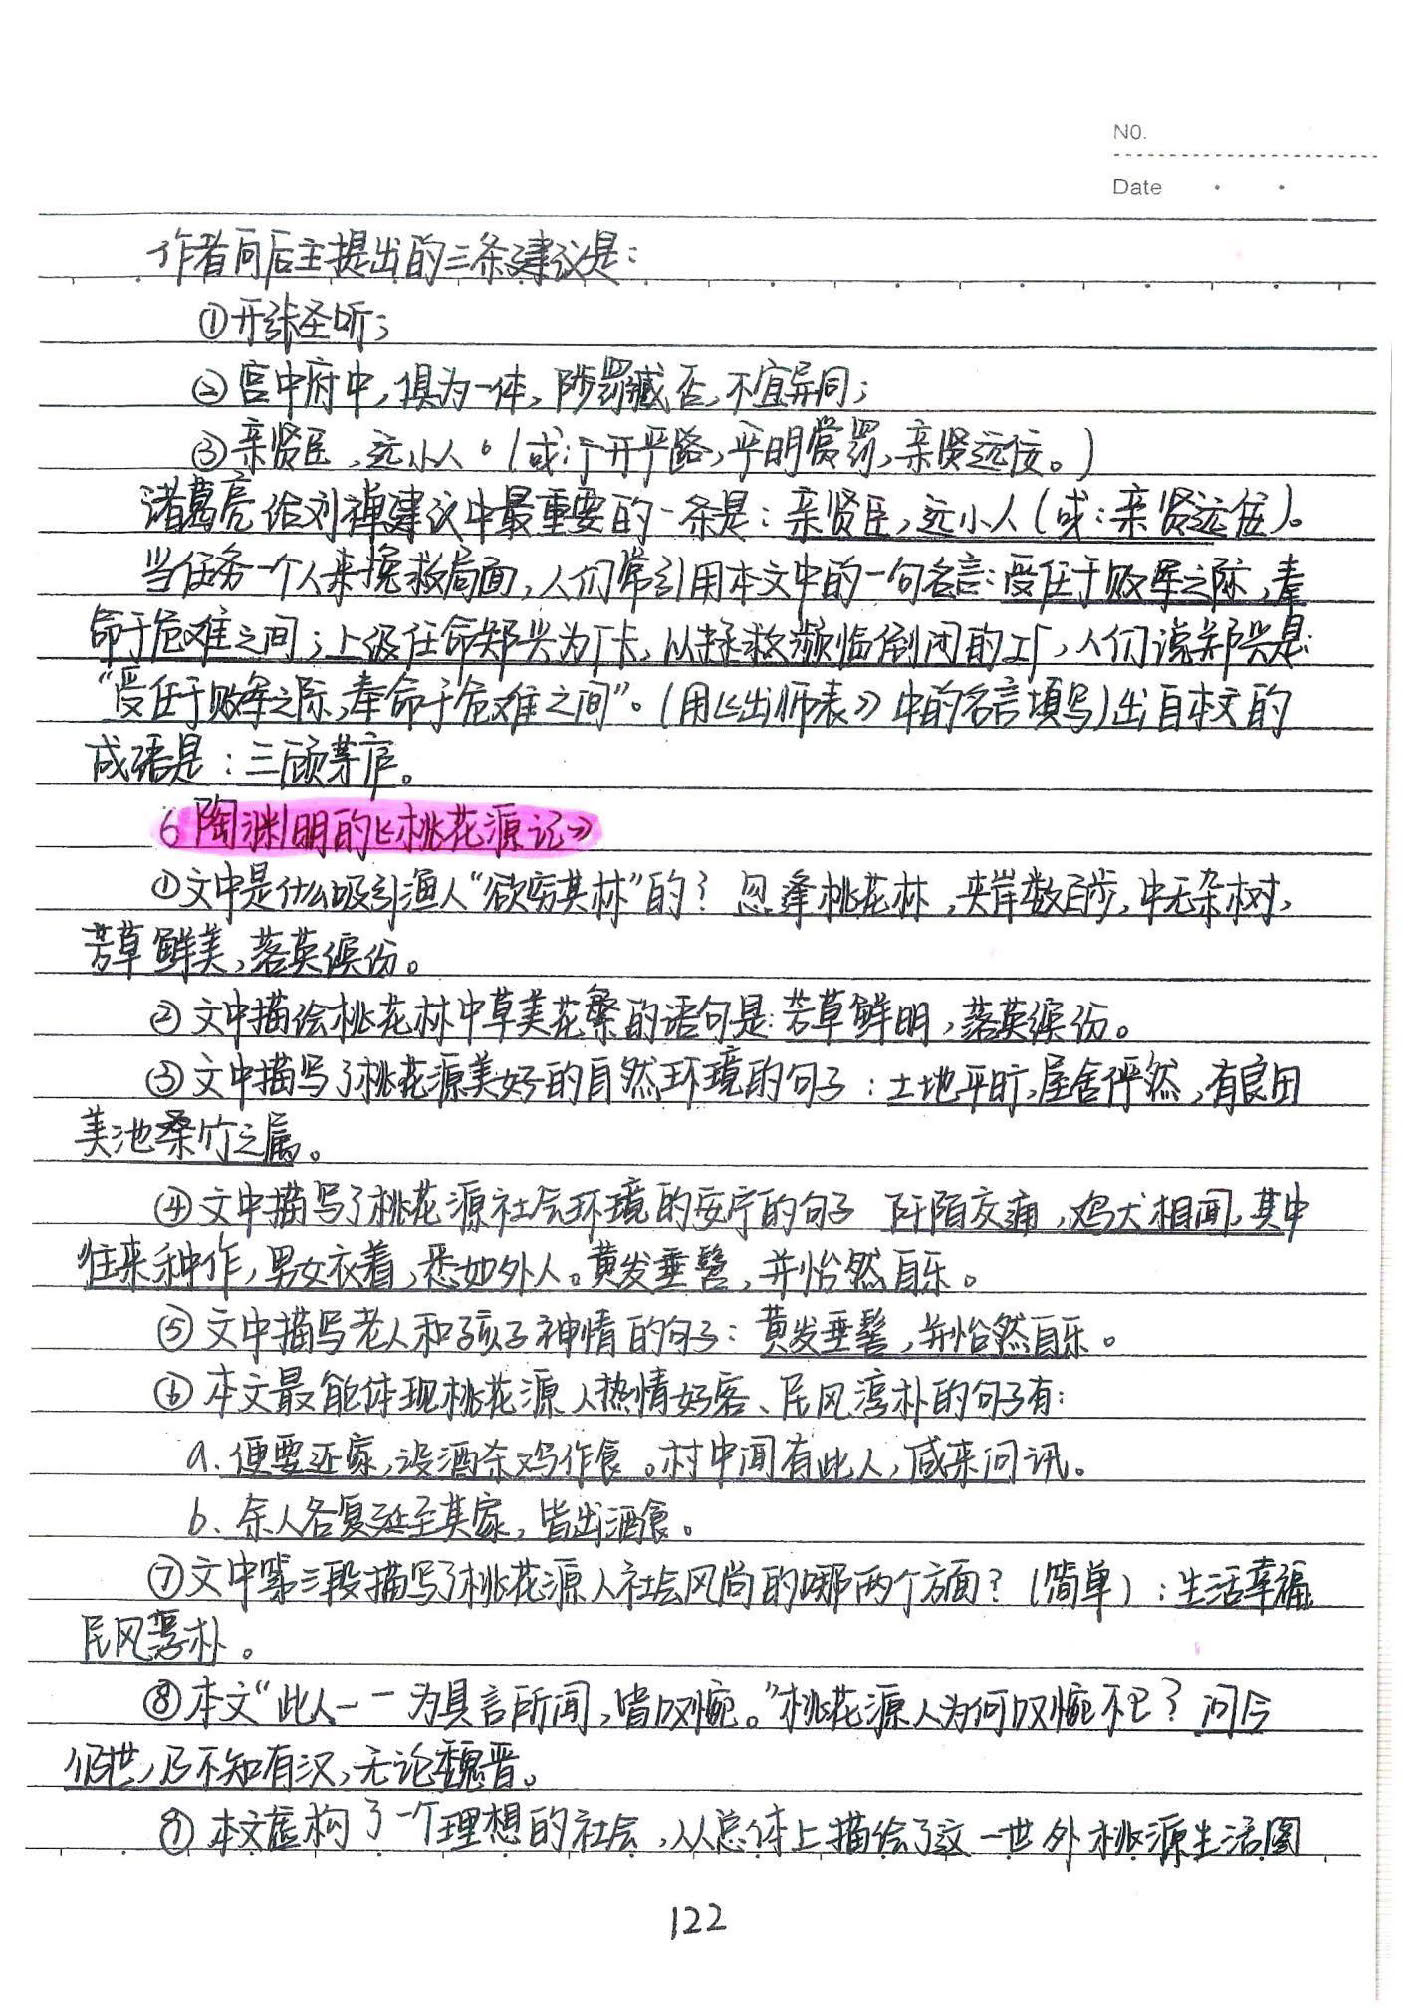 NO.
Date
作者向后主提出的三条建议是：
①开张圣听；
②宫中府中，俱为一体，陟罚臧否，不宜异同；
③亲贤臣，远小人。（或：广开严路，平明赏罚，亲贤远佞。）
诸葛亮给刘禅建议中最重要的一条是：亲贤臣，远小人（或：亲贤远佞）。
当任务一个人来挽救局面，人们常引用本文中的一句名言：受任于败军之际，奉
命于危难之间；上级任命郑兴为厂长，以拯救濒临倒闭的工厂，人们说郑兴是：
“受任于败军之际，奉命于危难之间”。（用《出师表》中的名言填写）出自本文的
成语是：三顾茅庐。
6 陶渊明的《桃花源记》
①文中是什么吸引渔人“欲穷其林”的？忽逢桃花林，夹岸数百步，中无杂树，
芳草鲜美，落英缤纷。
②文中描绘桃花林中草美花繁的语句是：芳草鲜明，落英缤纷。
③文中描写了桃花源美好的自然环境的句子：土地平旷，屋舍俨然，有良田
美池桑竹之属。
④文中描写了桃花源社会环境的安宁的句子 阡陌交通，鸡犬相闻，其中
往来种作，男女衣着，悉如外人。黄发垂髫，并怡然自乐。
⑤文中描写老人和孩子神情的句子：黄发垂髫，并怡然自乐。
⑥本文最能体现桃花源人热情好客、民风淳朴的句子有：
a. 便要还家，设酒杀鸡作食。村中闻有此人，咸来问讯。
b、余人各复延至其家，皆出酒食。
⑦文中第三段描写了桃花源人社会风尚的哪两个方面？（简单）：生活幸福
民风淳朴。
⑧本文“此人一一为具言所闻，皆叹惋。”桃花源人为何叹惋不已？问今
何世，乃不知有汉，无论魏晋。
⑨本文虚构了一个理想的社会，从总体上描绘了这一世外桃源生活图
122